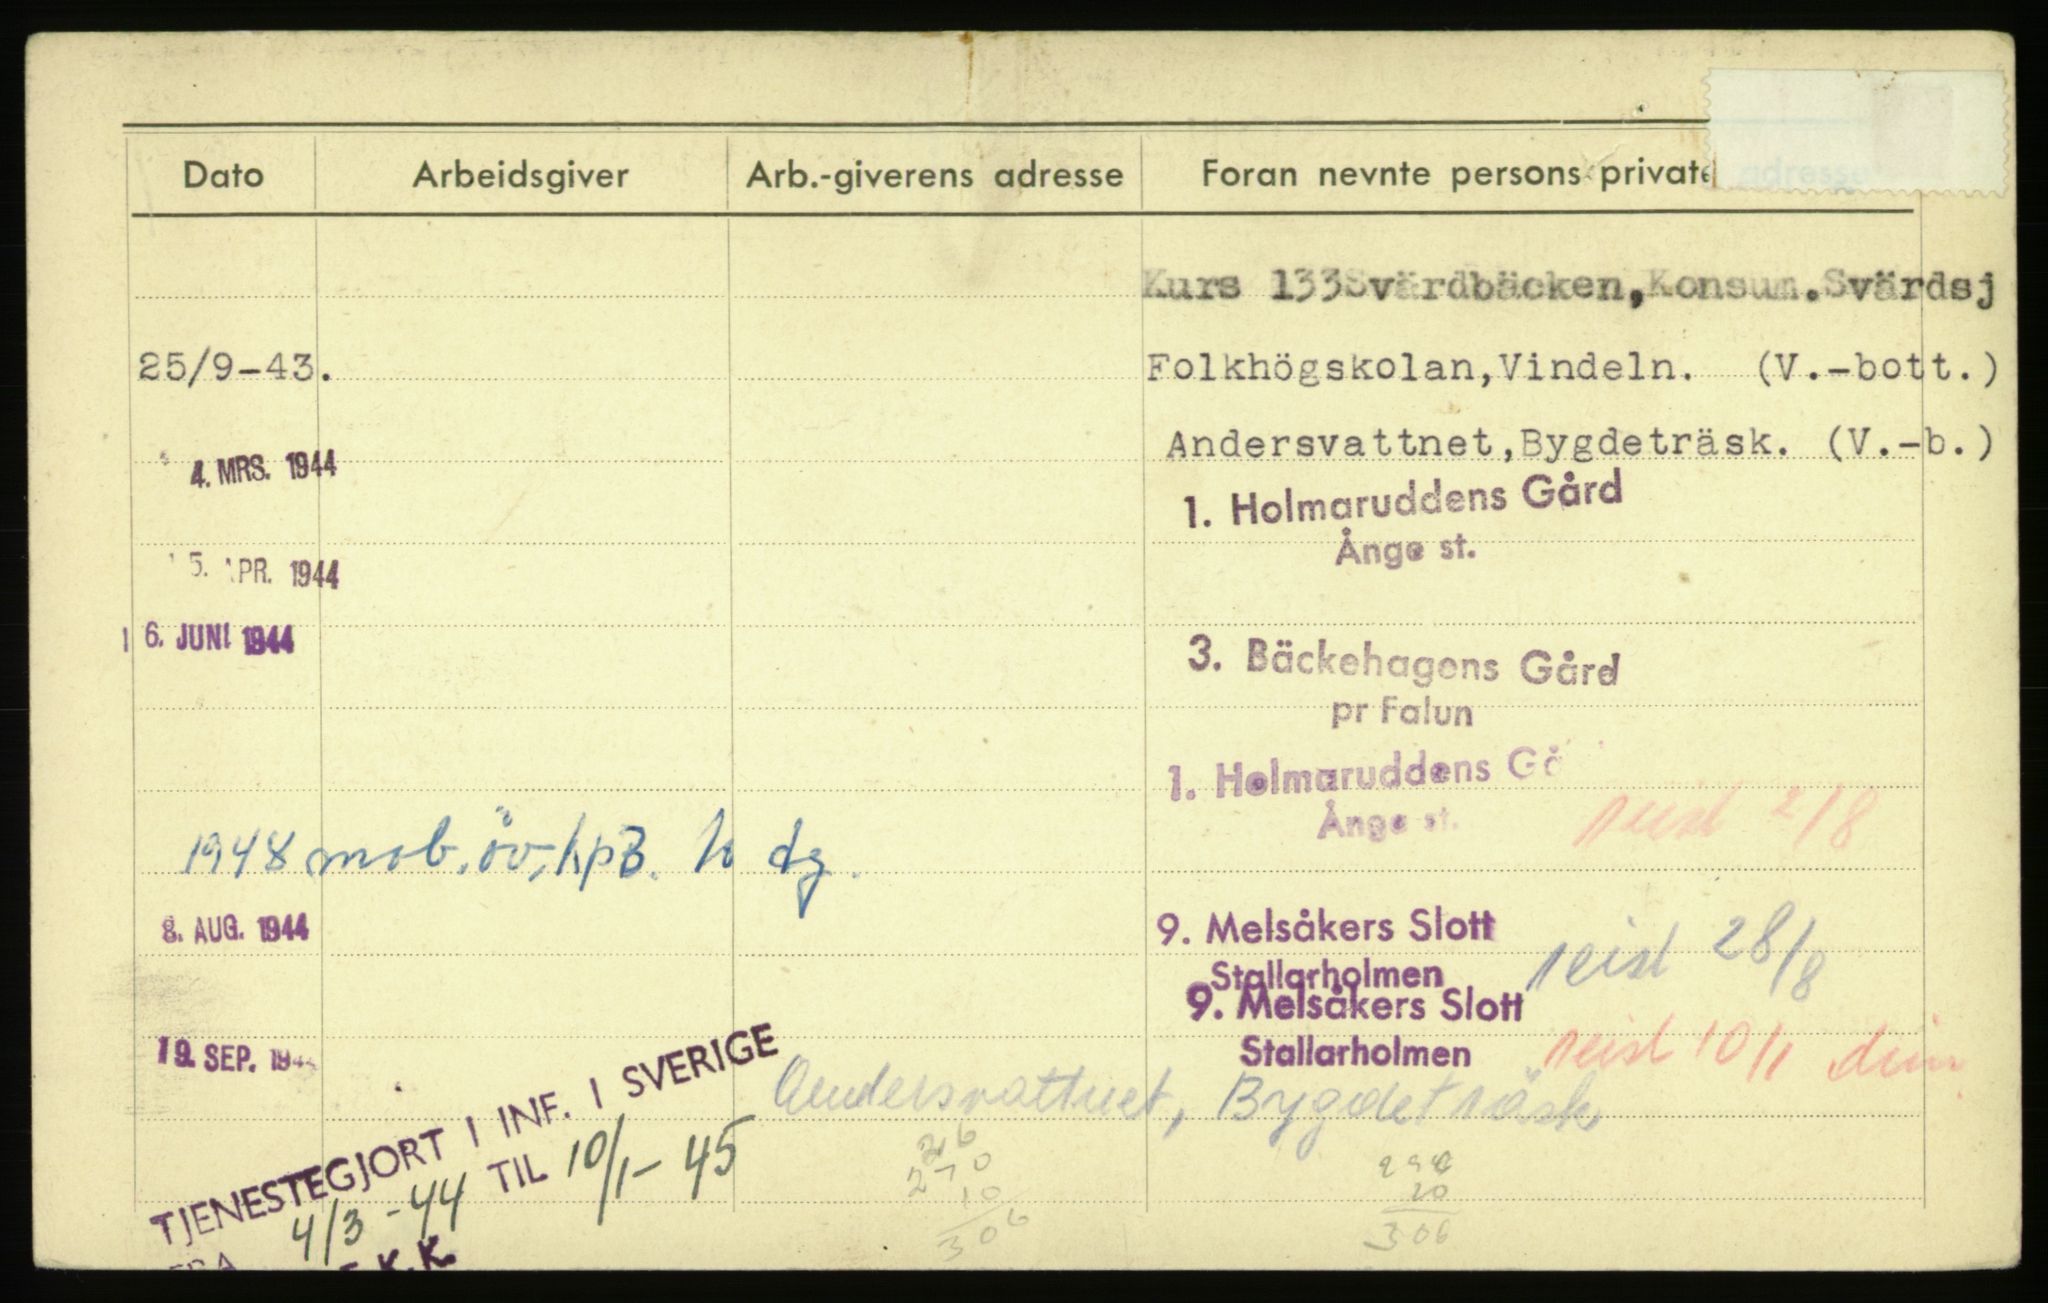 Dato Arbeidsgiver Arb.-giverens adresse Foran nevnte persons private adresse
Kurs 133Svärdbäcken,Konsum.Svärdsj
25/9-43. Folkhögskolan,Vindeln. (V.-bott.)
Andersvattnet,Bygdeträsk. (V.-b.)
4. MRS. 1944
1. Holmaruddens Gård
Ånge st.
5. APR. 1944
6. JUNI 1944
3. Bäckehagens Gård
pr Falun
1. Holmaruddens Gå
Ånge st.
reist 2/8
1948 mob.öv,kpB. dg.
8. AUG. 1944
9. Melsåkers Slott
Stallarholmen
reist 28/8
9. Melsåkers Slott
Stallarholmen
19. SEP. 1944
reist 10/1 dim
Andersvattnet, Bygdeträsk
TJENESTEGJORT I INF. I SVERIGE
FRA 4/3-44 TIL 10/1-45
K.K.
26
270
10
306
20
306